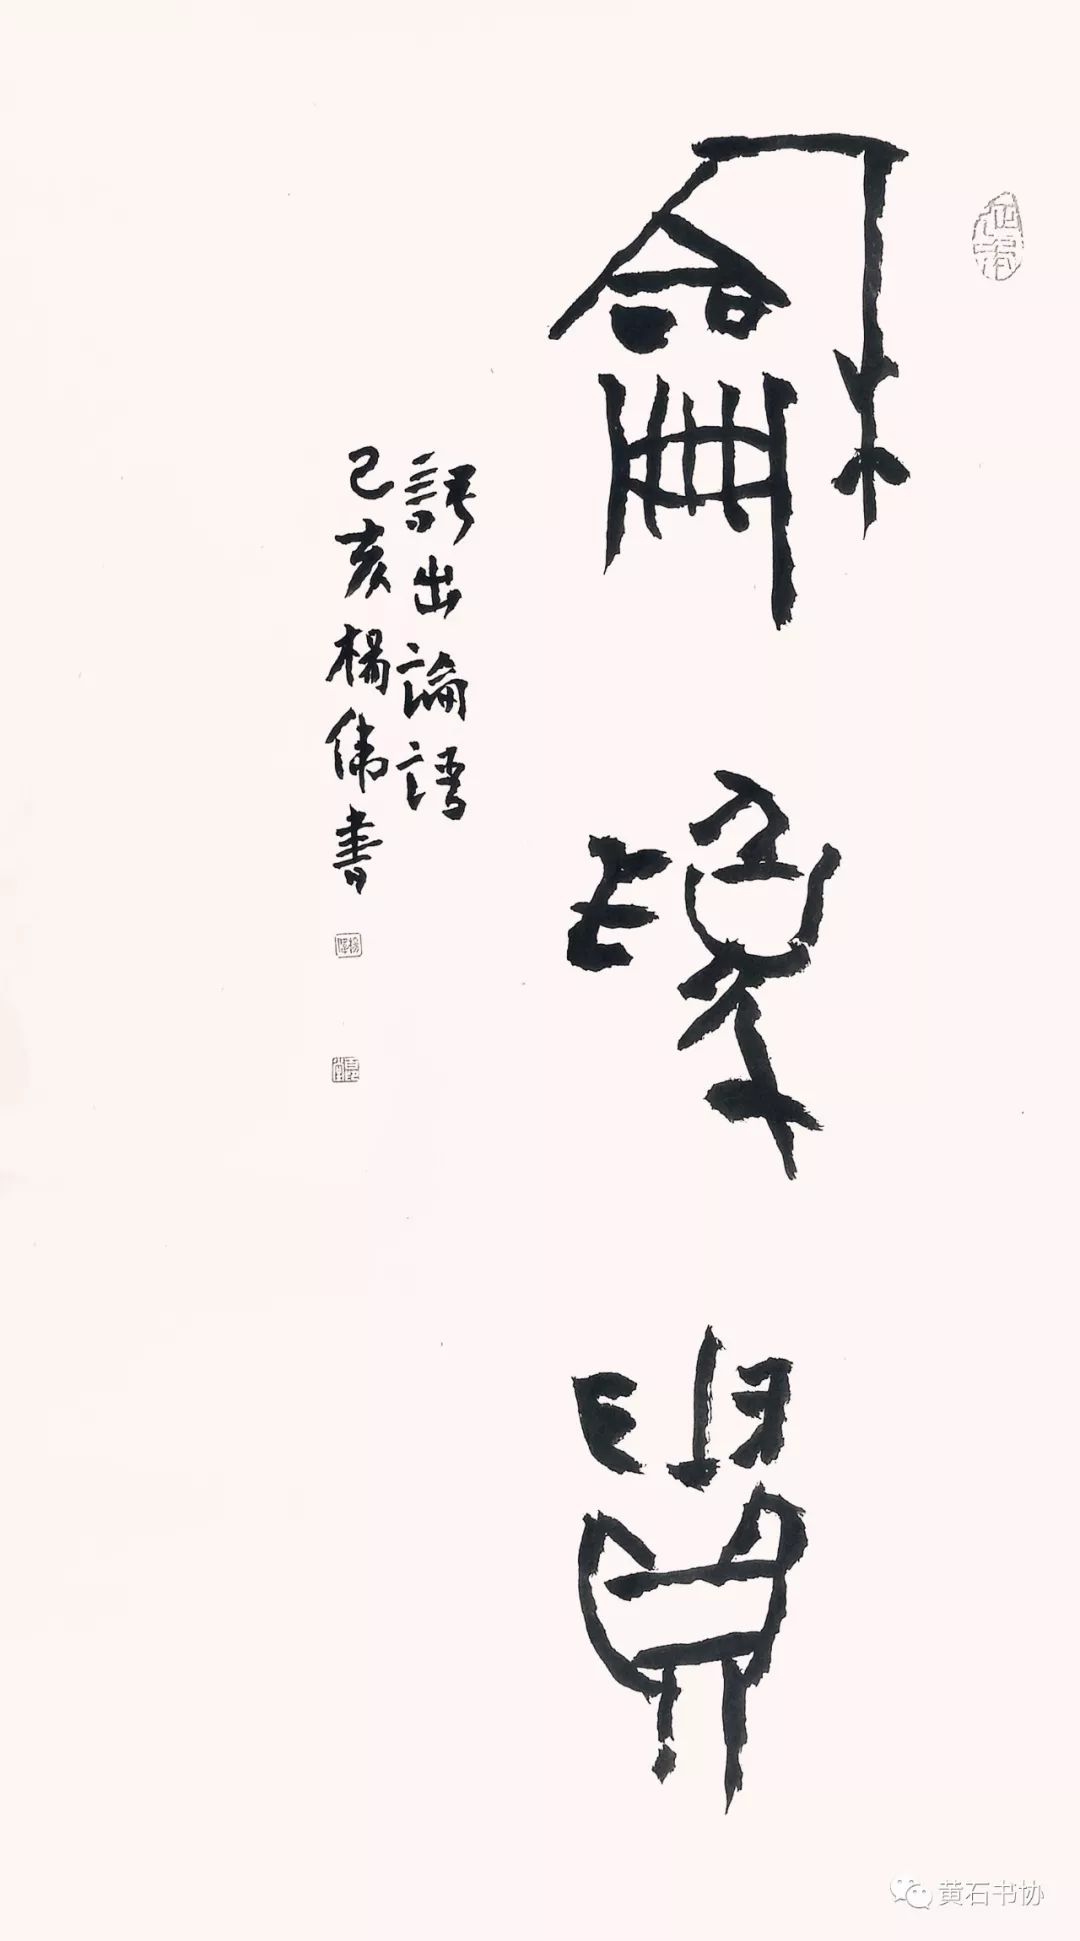 龢為貴
語出論語
己亥楊偉書
黄石书协